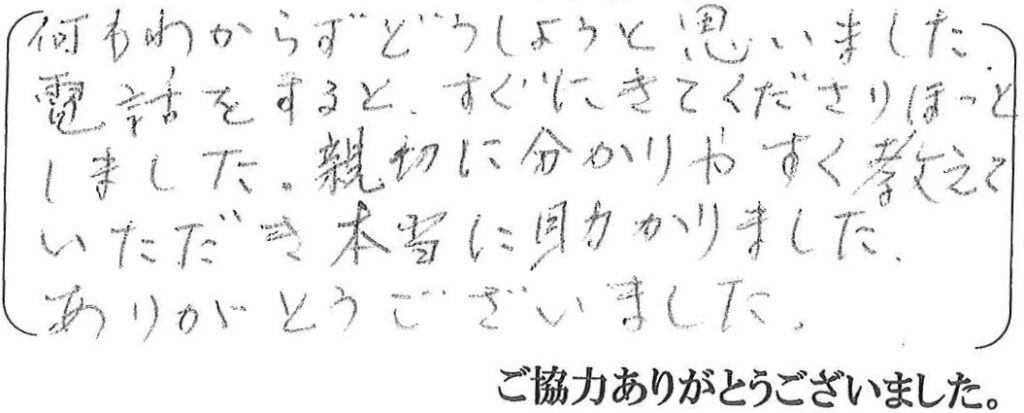 何もわからずどうしようと思いました.
電話をすると、すぐにきてくださりほっと
しました。親切に分かりやすく教えて
いただき本当に助かりました.
ありがとうございました.
ご協力ありがとうございました。